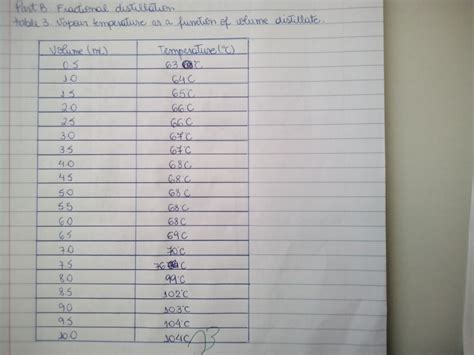 Part B. Fractional distillation
table 3. Vapour temperature as a function of volume distillate.
Volume (mL) Temperature (°C)
0.5 63 °C
1.0 64°C
1.5 65°C
2.0 66°C
2.5 66°C
3.0 67°C
3.5 67°C
4.0 68°C
4.5 68°C
5.0 68°C
5.5 68°C
6.0 68°C
6.5 69°C
7.0 70°C
7.5 76 °C
8.0 99°C
8.5 102°C
9.0 103°C
9.5 104°C
10.0 104°C